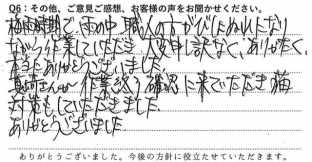 Q6：その他、ご意見ご感想、お客様の声をお聞かせください。
梅雨時期で、雨の中 職人の方がびしょぬれになり
ながら作業していただき、大変申し訳なく、ありがたく、
本当にありがとうございました。
真崎さんが 作業終り確認に来ていただき 猫
対策もしていただきました。
ありがとうございました
ありがとうございました。今後の方針に役立たせていただきます。